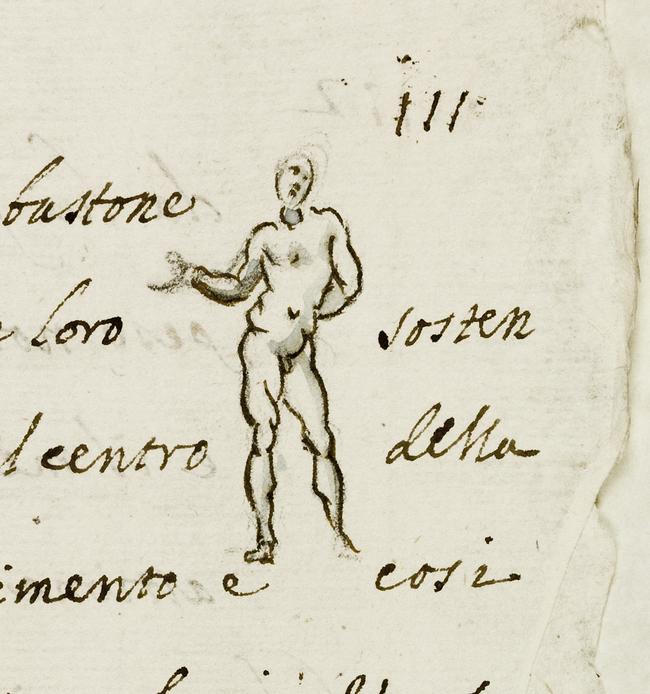 111
bastone
loro sosten
centro della
imento e cosi